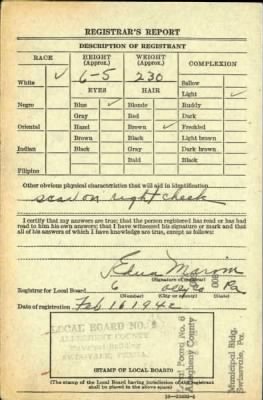 REGISTRAR'S REPORT
DESCRIPTION OF REGISTRANT
RACE HEIGHT (Approx.) WEIGHT (Approx.) COMPLEXION
White ✓ 6-5 230 Sallow
EYES HAIR Light ✓
Negro Blue ✓ Blonde Ruddy
Gray Red Dark
Oriental Hazel Brown ✓ Freckled
Brown Black Light brown
Indian Black Gray Dark brown
Bald Black
Filipino
Other obvious physical characteristics that will aid in identification
scar on right cheek
I certify that my answers are true; that the person registered has read or has had
read to him his own answers; that I have witnessed his signature or mark and that
all of his answers of which I have knowledge are true, except as follows:
Edna
Registrar for Local Board 6 Pa
(Number) (City or county) (State)
Date of registration Feb 16 1942
LOCAL BOARD NO. 6
ALLEGHENY COUNTY
SWISSVALE, PENNA.
Local Board No. 6
Allegheny County
Municipal Bldg.
Swissvale, Pa.
(STAMP OF LOCAL BOARD)
(The stamp of the Local Board having jurisdiction of the registrant
shall be placed in the above space)